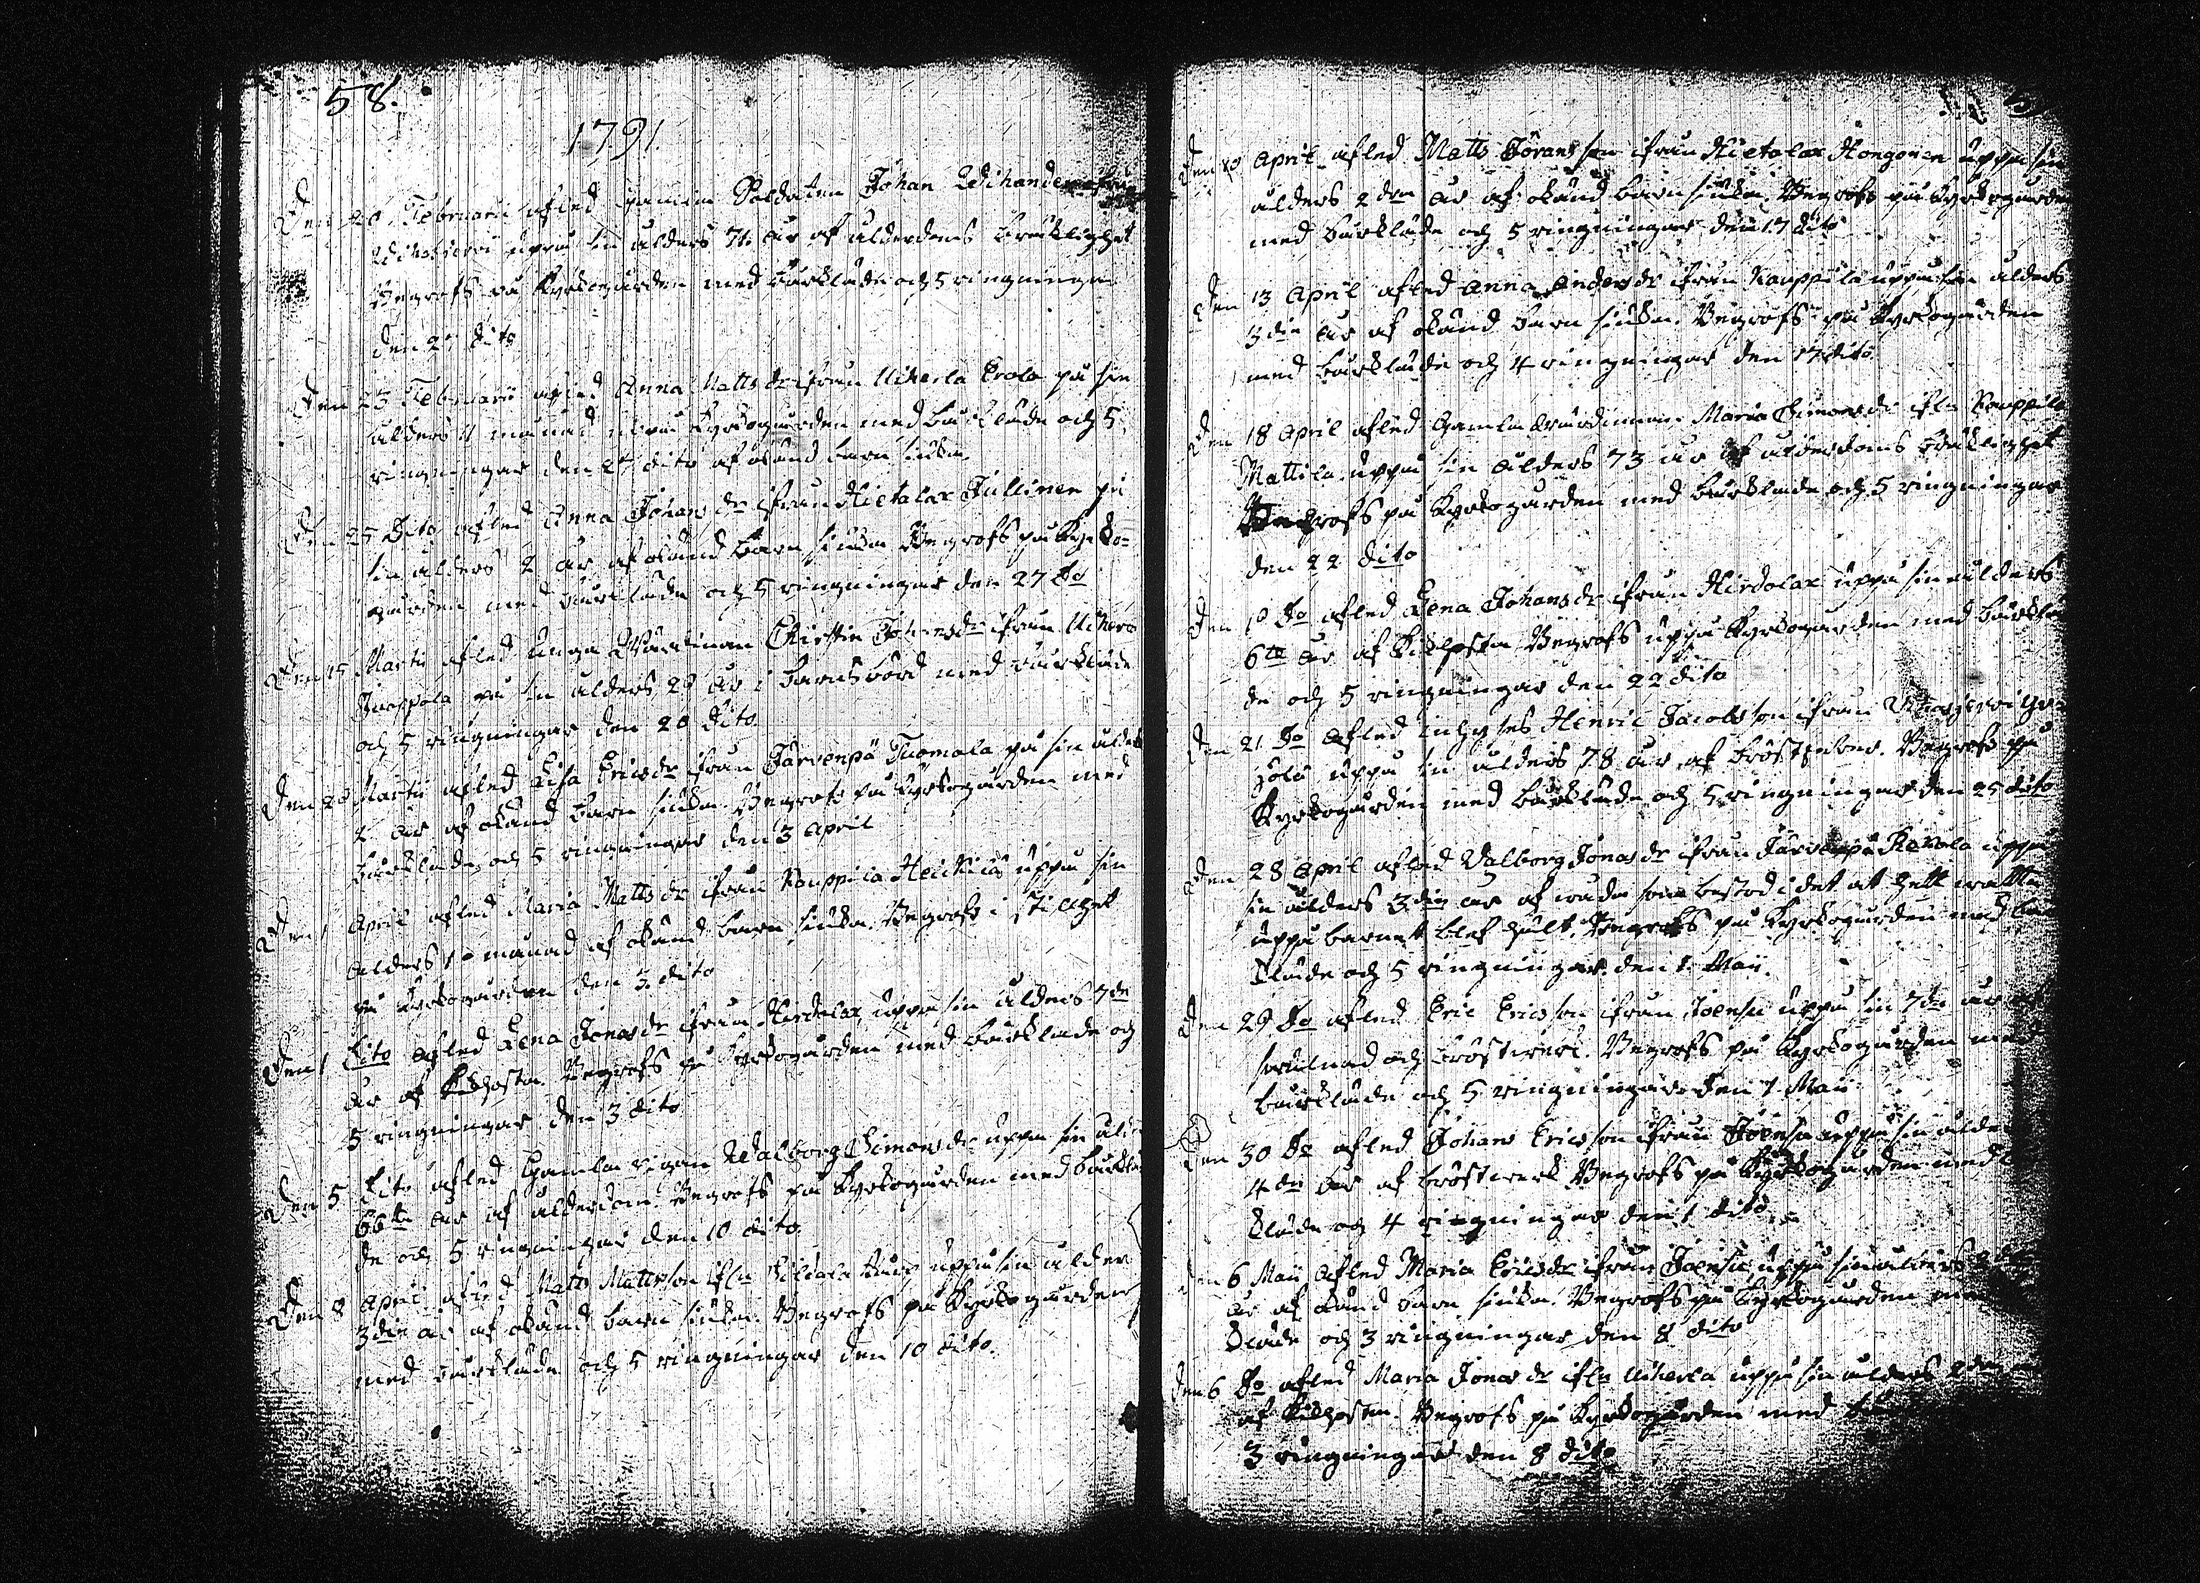 58.
1791
Den 20 Februarii afled gamla Soldaten Johan Wihander ifrån
uppå sin ålders 71 år af ålderdoms bräklighet
Begrofs på Kyrkogården med bårkläde och 5 ringningar
den 27 dito
Den 23 Februarii afled Anna Matts dr ifrån Uikerla Erola på sin
ålders 11 månad uppå Kyrkogården med bårkläde och 5
ringningar den 27 dito af okänd barn siukdom
Den 25 Dito afled Anna Johans dr ifrån Hietalax Jullinen på
sin ålders 2 år af okänd barn siukdom Begrofs på Kyrko=
gården med bårkläde och 5 ringningar den 27 do
Den 15 Martii afled unga Wärdinnan Christin Johansdr ifrån Uikerla
Juoppola på sin ålders 29 år i barnsbörd med bårkläde
och 5 ringningar den 20 dito
Den 28 Martii afled Lisa Ericsdr ifrån Järvenpä Tuomala på sin ålders
2 år af okänd barn siukdom Begrofs på Kyrkogården med
bårkläde och 5 ringningar den 3 April
Den 1 April afled Maria Matts dr ifrån Kauppila Heickilä uppå sin
ålders 10 månad af okänd barn siukdom. Begrofs i stillhet
på Kyrkogården den 3 dito
Den 1 dito afled Lena Jonasdr ifrån Hirdolax uppå sin ålders 7de
år af Kikhosta. Begrofs på Kyrkogården med bårkläde och
5 ringningar den 3 dito
Den 5 dito afled Gamla Pigan Walborg Simonsdr uppå sin ålders
66te år af ålderdom. Begrofs på Kyrkogården med bårklä
de och 5 ringningar den 10 dito.
Den 8 April afled Matts Mattsson ifrn uppå sin ålders
3die år af okänd barn siukdom. Begrofs på Kyrkogården
med bårkläde och 5 ringningar den 10 dito.
Den 10 April afled Matts Göransson ifrån Hietalax Hongonen uppå sin
ålders 2dra år af okänd barn siukdom. Begrofs på Kyrkogården
med bårkläde och 5 ringningar den 17 dito
Den 13 April afled Anna Anders dr ifrån Kauppila uppå sin ålders
3die år af okänd barn siukdom. Begrofs på Kyrkogården
med bårkläde och 4 ringningar den 17 dito
Den 18 April afled Gamla Wärdinnan Maria Simonsdr ifrn Kauppila
Mattila uppå sin ålders 73 år af ålderdoms bräklighet
Begrofs på Kyrkogården med bårkläde och 5 ringningar
den 22 dito
Den 19 do afled Lena Johansdr ifrån Hirdolax uppå sin ålders
6te år af Kikhosta Begrofs uppå Kyrkogården med bårklä
de och 5 ringningar den 22 dito
Den 21 do afled inhyses Henric Jacobsson ifrån
uppå sin ålders 78 år af bröstfeber. Begrofs på
Kyrkogården med bårkläde och 5 ringningar den 25 dito
Den 28 April afled Walborg Jonas dr ifrån Järvenpä uppå
sin ålders 3die år af wåda som bestod i det at hett watten
uppå barnet blef hält. Begrofs på Kyrkogården med bår
kläde och 5 ringningar den 1. Maii.
Den 29 do afled Eric Ericsson ifrån Joensu uppå sin 7de år af
swulnad och bröstwerk. Begrofs på Kyrkogården med
bårkläde och 5 ringningar den 1 Maii
Den 30 do afled Johans Ericsson ifrån Joensu uppå sin ålders
4de år af bröstwerk Begrofs på Kyrkogården med
kläde och 4 ringningar den 1 dito.
Den 6 Maii afled Maria Ericsdr ifrån Joensu uppå sin ålders
år af okänd barn siukdom. Begrofs på Kyrkogården
kläde och 3 ringningar den 8 dito
Den 6 do afled Maria Jonas dr ifrn Uikerla uppå sin ålders
af Kikhostan. Begrofs på Kyrkogården med
3 ringningar den 8 dito